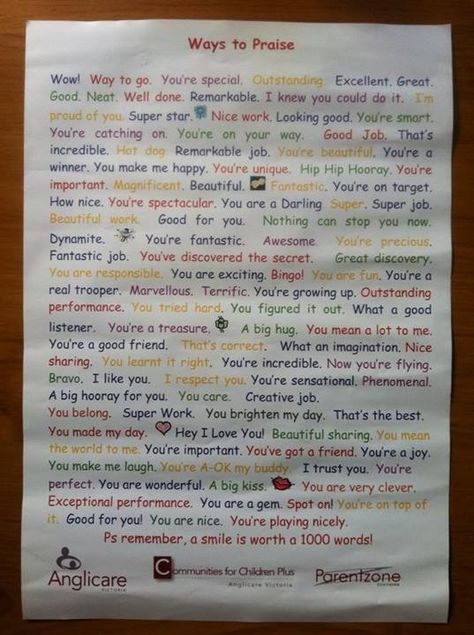 Ways to Praise
Wow! Way to go. You're special. Outstanding. Excellent. Great.
Good. Neat. Well done. Remarkable. I knew you could do it. I'm
proud of you. Super star. Nice work. Looking good. You're smart.
You're catching on. You're on your way. Good Job. That's
incredible. Hot dog Remarkable job. You're beautiful. You're a
winner. You make me happy. You're unique. Hip Hip Hooray. You're
important. Magnificent. Beautiful. Fantastic. You're on target.
How nice. You're spectacular. You are a Darling Super. Super job.
Beautiful work. Good for you. Nothing can stop you now.
Dynamite. You're fantastic. Awesome You're precious.
Fantastic job. You've discovered the secret. Great discovery.
You are responsible. You are exciting. Bingo! You are fun. You're a
real trooper. Marvellous. Terrific. You're growing up. Outstanding
performance. You tried hard. You figured it out. What a good
listener. You're a treasure. A big hug. You mean a lot to me.
You're a good friend. That's correct. What an imagination. Nice
sharing. You learnt it right. You're incredible. Now you're flying.
Bravo. I like you. I respect you. You're sensational. Phenomenal.
A big hooray for you. You care. Creative job.
You belong. Super Work. You brighten my day. That's the best.
You made my day. Hey I Love You! Beautiful sharing. You mean
the world to me. You're important. You've got a friend. You're a joy.
You make me laugh. You're A-OK my buddy. I trust you. You're
perfect. You are wonderful. A big kiss. You are very clever.
Exceptional performance. You are a gem. Spot on! You're on top of
it. Good for you! You are nice. You're playing nicely.
Ps remember, a smile is worth a 1000 words!
Anglicare
VICTORIA
Communities for Children Plus
Anglicare Victoria
Parentzone